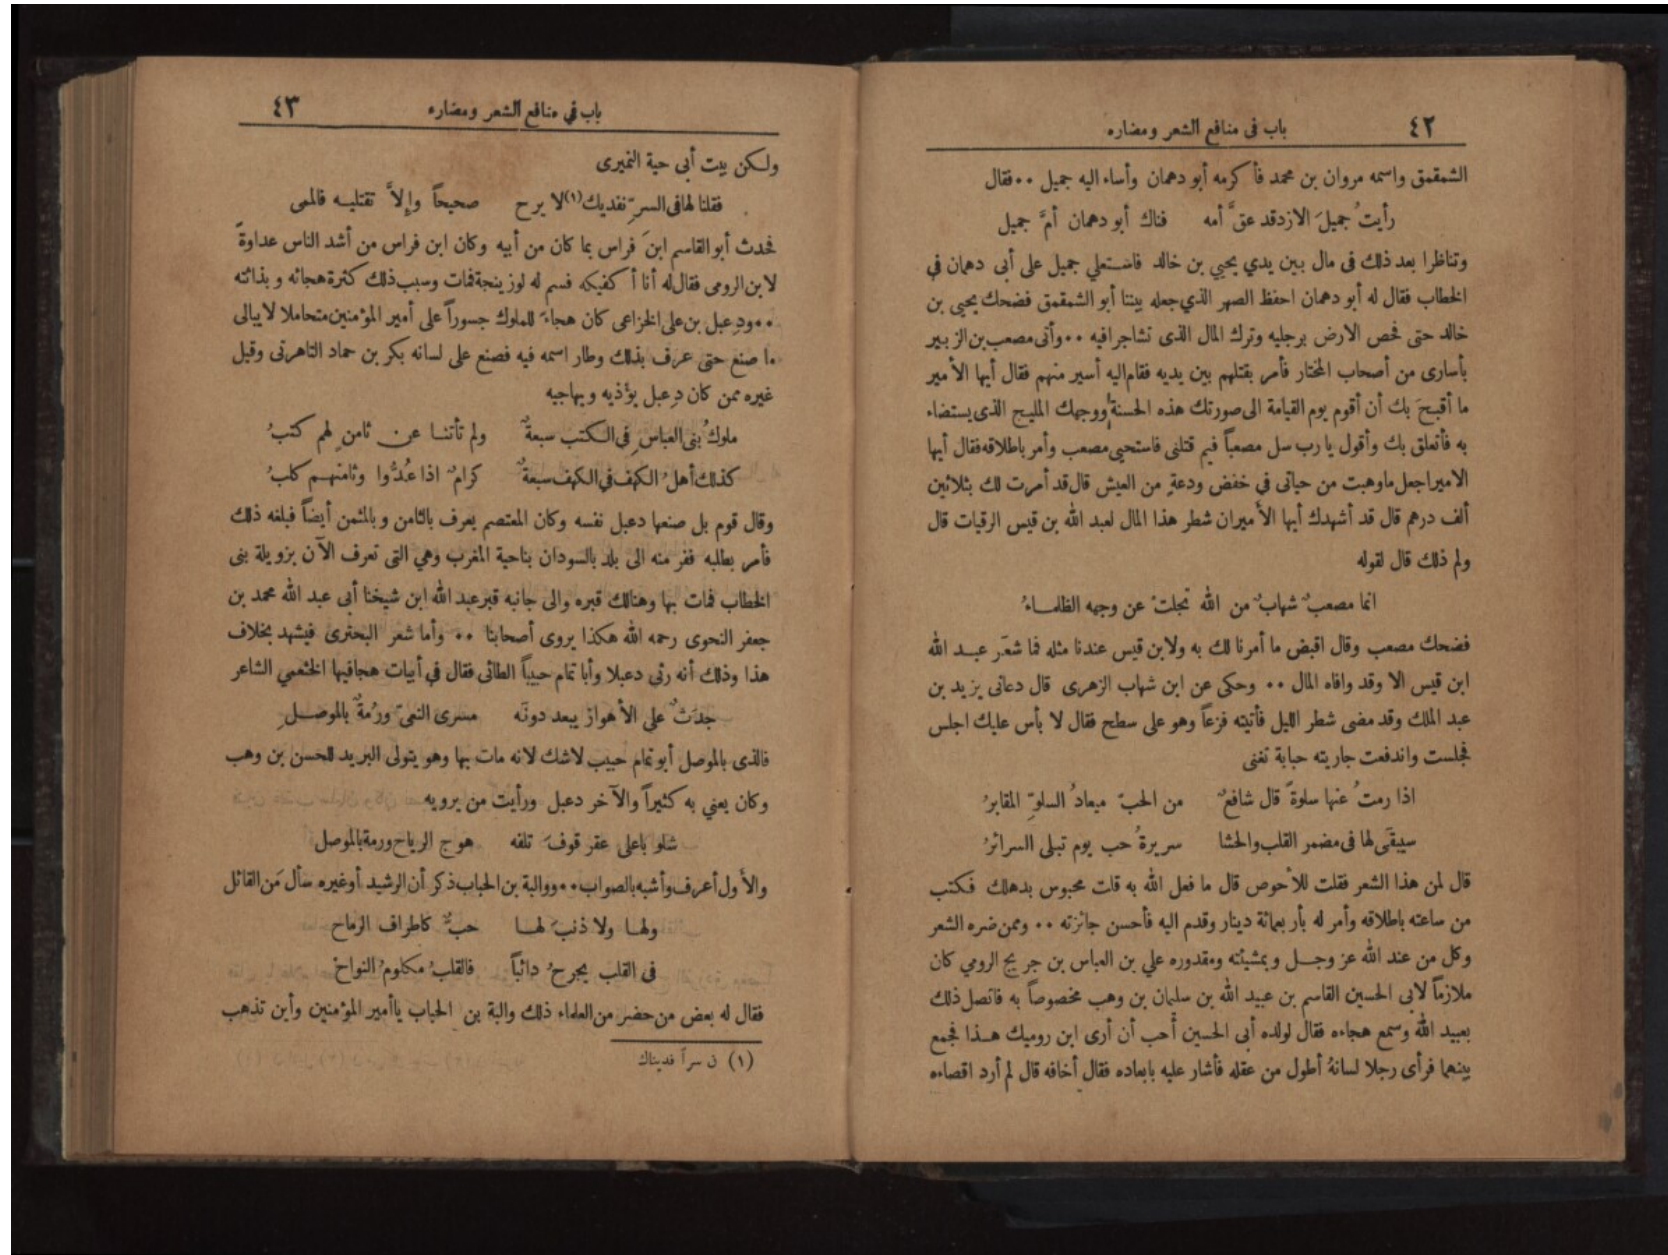 ٤٢ باب فى منافع الشعر ومضاره
الشمقمق واسمه مروان بن محمد فأ كرمه أبو دهمان وأساء اليه جميل ٠٠ فقال
رأيتُ جميلَ الازدقد عقَّ أمه فناك أبو دهمان أمَّ جميل
وتناظرا بعد ذلك فى مال بين يدي يحيي بن خالد فاستعلي جميل على أبى دهمان في
الخطاب فقال له أبو دهمان احفظ الصهر الذي جعله بيننا أبو الشمقمق فضحك يحيي بن
خالد حتى فحص الارض برجليه وترك المال الذى تشاجرا فيه ٠٠ وأتى مصعب بن الزبير
بأسارى من أصحاب المختار فأمر بقتلهم بين يديه فقام اليه أسير منهم فقال أيها الأمير
ما أقبحَ بك أن أقوم يوم القيامة الى صورتك هذه الحسنة ووجهك المليح الذى يستضاء
به فأتعلق بك وأقول يا رب سل مصعباً فيم قتلنى فاستحيي مصعب وأمر باطلاقه فقال أيها
الامير اجعل ماوهبت من حياتى في خفض ودعةٍ من العيش قال قد أمرت لك بثلاثين
ألف درهم قال قد أشهدك أيها الأميران شطر هذا المال لعبد الله بن قيس الرقيات قال
ولم ذلك قال لقوله
انما مصعبٌ شهابٌ من الله تجلتْ عن وجهه الظلماءُ
فضحك مصعب وقال اقبض ما أمرنا لك به ولابن قيس عندنا مثله فما شعَر عبد الله
ابن قيس الا وقد وافاه المال ٠٠ وحكى عن ابن شهاب الزهرى قال دعانى يزيد بن
عبد الملك وقد مضى شطر الليل فأتيته فزعاً وهو على سطح فقال لا بأس عليك اجلس
فجلست واندفعت جاريته حبابة تغنى
اذا رمتُ عنها سلوةً قال شافعٌ من الحبّ ميعادُ السلوِّ المقابرُ
سيبقَى لها فى مضمر القلب والحشا سريرةُ حب يوم تبلى السرائرُ
قال لمن هذا الشعر فقلت للأحوص قال ما فعل الله به قلت محبوس بدهلك فكتب
من ساعته باطلاقه وأمر له بأربعمائة دينار وقدم اليه فأحسن جائزته ٠٠ وممن ضره الشعر
وكل من عند الله عز وجل وبمشيئته ومقدوره علي بن العباس بن جريج الرومي كان
ملازماً لابى الحسين القاسم بن عبيد الله بن سليمان بن وهب مخصوصاً به فاتصل ذلك
بعبيد الله وسمع هجاءه فقال لولده أبى الحسين أحب أن أرى ابن روميك هذا فجمع
بينهما فرأى رجلا لسانهُ أطول من عقله فأشار عليه بابعاده فقال أخافه قال لم أرد اقصاءه
باب في منافع الشعر ومضاره ٤٣
ولكن بيت أبى حية النميرى
فقلنا لها فى السرِّ نفديك(١) لا يرح صحيحاً وإلاَّ تقتليه فالمى
فحدث أبو القاسم ابنَ فراس بما كان من أبيه وكان ابن فراس من أشد الناس عداوةً
لابن الرومى فقال له أنا أ كفيكه فسم له لوزينجة فمات وسبب ذلك كثرة هجائه وبذائته
٠٠ ودِعبل بن على الخزاعى كان هجاءً للملوك جسوراً على أمير المؤمنين متحاملا لا يبالى
ما صنع حتى عرف بذلك وطار اسمه فيه فصنع على لسانه بكر بن حماد التاهرتى وقيل
غيره ممن كان دِعبل يؤذيه ويهاجيه
ملوكُ بنى العباسِ فى الكتب سبعةٌ ولم تأتنا عن ثامنٍ لهم كتبُ
كذلك أهلُ الكهف في الكهف سبعةٌ كرامٌ اذا عُدُّوا وثامنهم كلبُ
وقال قوم بل صنعها دعبل نفسه وكان المعتصم يعرف بالثامن وبالمثمن أيضاً فبلغه ذلك
فأمر بطلبه ففر منه الى بلد بالسودان بناحية المغرب وهي التى تعرف الآن بزويلة بنى
الخطاب فمات بها وهنالك قبره والى جانبه قبرعبد الله ابن شيخنا أبى عبد الله محمد بن
جعفر النحوى رحمه الله هكذا يروى أصحابنا ٠٠ وأما شعر البحترى فيشهد بخلاف
هذا وذلك أنه رثى دعبلا وأبا تمام حبيباً الطائى فقال في أبيات هجا فيها الخثعمي الشاعر
جدَثٌ على الأهواز يبعد دونَه مسرى النعىّ ورُمةٌ بالموصل
فالذى بالموصل أبو تمام حبيب لاشك لانه مات بها وهو يتولى البريد للحسن بن وهب
وكان يعني به كثيراً والآخر دعبل ورأيت من يرويه
شلو باعلى عقر قوفَ تلفه هوج الرياح ورمة بالموصل
والأول أعرف وأشبه بالصواب ٠٠ ووالبة بن الحباب ذكر أن الرشيد أوغيره سأل مَن القائل
ولها ولا ذنبَ لها حبٌّ كاطراف الرماح
فى القلب يجرحُ دائباً فالقلبُ مكلومُ النواحْ
فقال له بعض من حضر من العلماء ذلك والبة بن الحباب ياأمير المؤمنين وأين تذهب
(١) ن سراً فديناك